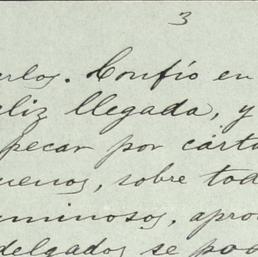 3
arlos. Confío en
eliz llegada, y
pecar por carta
uenos, sobre tod
uminosos, apro
delgados se pod